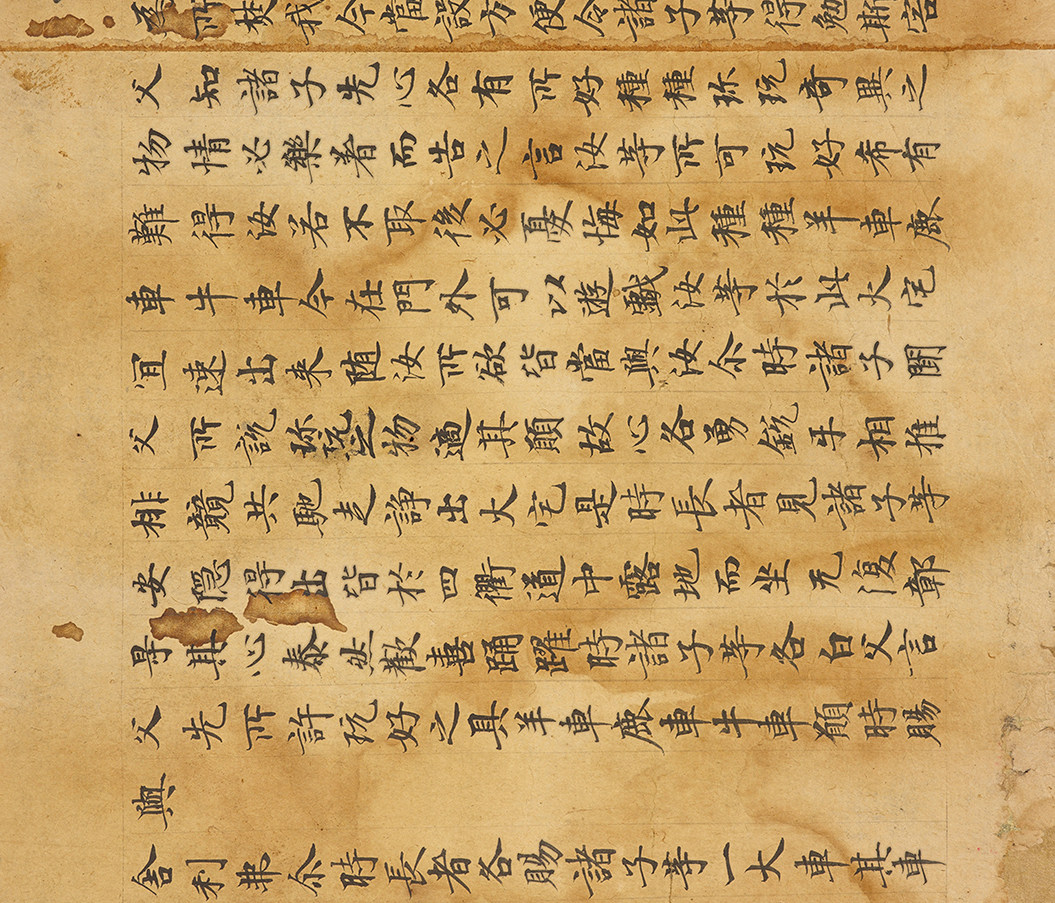 所焚我今當設方便令諸子等得勉斯害
父知諸子先心各有所好種種珎玩奇異之
物情必樂著而告之言汝等所可玩好希有
難得汝若不取後必憂悔如此種種羊車鹿
車牛車今在門外可以遊戲汝等於此火宅
宜速出来随汝所欲皆當與汝尒時諸子聞
父所說珎玩之物適其願故心各勇銳互相推
排競共馳走諍出火宅是時長者見諸子等
安隱得出皆於四衢道中露地而坐无復鄣
㝵其心泰然歡喜踊躍時諸子等各白父言
父先所許玩好之具羊車鹿車牛車願時賜
與
舍利弗尒時長者各賜諸子等一大車其車